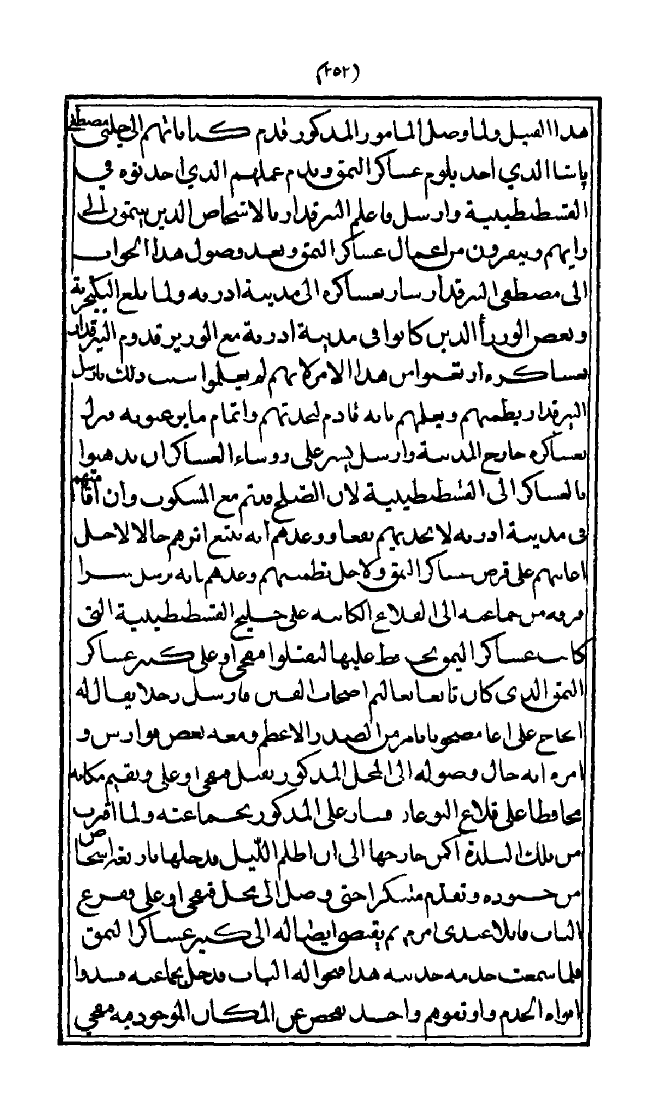 (٢٥٢)
هذا القبيل ولما وصل المامور المذكور قدم كتاباتهم الى جلبي مصطفى
باشا الذي اخذ يلوم عساكر اليمق ويذم عملهم الذي احدثوه في
القسطنطينية وارسل فاعلم البيرقدار بالاشخاص الذين ينتمون الى
رايهم وينفرون من اعمال عساكر اليمق وبعد وصول هذا الجواب
الى مصطفى البيرقدار سار بعساكره الى مدينة ادرنه ولما بلغ اليكيجرية
وبعض الوزرأ الذين كانوا في مدينة ادرنة مع الوزير قدوم البيرقدار
بعساكره ارتعبوا من هذا الامر لانهم لم يعلموا سبب ذلك فارسل
البيرقدار يطمنهم ويعلمهم بانه قادم لنجدتهم واتمام ما يرغبونه ونزل
بعساكره خارج المدينة وارسل يشير على روساء العساكر ان يذهبوا
بالعساكر الى القسطنطينية لان الصلح قد تم مع المسكوب وان اقامتهم
في مدينة ادرنه لا تجديهم نفعا ووعدهم انه يتبع اثرهم حالا لاجل
اعانتهم على قرض عساكر اليمق ولاجل تطمينهم وعدهم بانه يرسل سرا
فرقه من جماعته الى القلاع الكاينه على خليج القسطنطينية التي
كانت عساكر اليمق تحافظ عليها ليقتلوا قبقجي اوغلى كبير عساكر
اليمق الذي كان تابعا بعالتهم اصحاب الفتن فارسل رجلا يقال له
الحاج على اغا مصحوبا بامر من الصدر الاعظم ومعه بعض فوارس و
امره انه حال وصوله الى المحل المذكور يقتل قبقجي اوغلى ويقيم مكانه
محافظا على قلاع البوغاز فسار على المذكور بجماعته ولما اقترب
من تلك البلدة اكمن خارجها الى ان اظلم الليل فدخلها باربعة اشخاص
من جنوده وتقدم متنكرا حتى وصل الى محل قبقجي اوغلى وقرع
الباب قايلا عندي امر مهم يقتضي ايصاله الى كبير عساكر اليمق
فلما سمعت خدمه حديثه هذا فتحوا له الباب فدخل بجماعته فسدوا
افواه الخدم واوثقوهم واخذ يفحص عن المكان الموجود فيه قبقجي